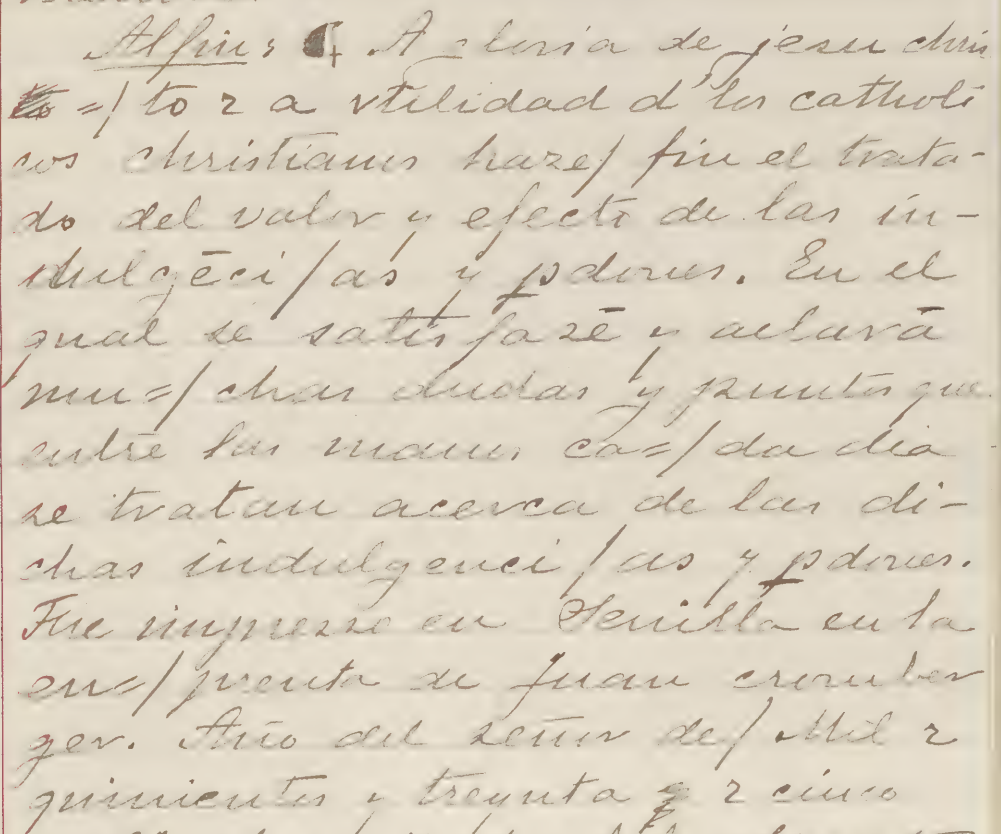 Al fin: ¶ A gloria de jesu chris
=/ to z a vtilidad d' los catholi
cos christianos haze/ fin el trata-
do del valor y efecto de las in-
dulgēci/as y pdones. En el
qual se satisfazē y aclarā
mu=/chas dudas y puntos que
entre las manos ca=/da dia
se tratan acerca de las di-
chas indulgenci/as y pdones.
Fue impresso en Seuilla en la
en=/prenta de Juan cromber
ger. Año del señor de/ Mil z
quinientos y treynta z cinco